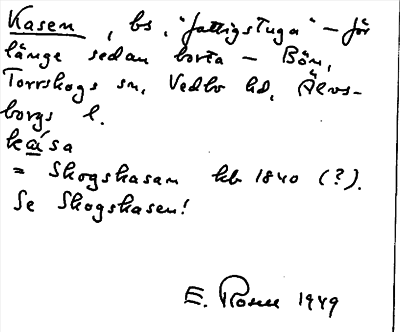 Kasen, bs, "fattigstuga" – för
länge sedan borta – Bön,
Torrskogs sn, Vedbo hd, Älvs-
borgs l.
kàsa
= Skogskasan kb 1840 (?).
Se Skogskasen!
E. Rosell 1949